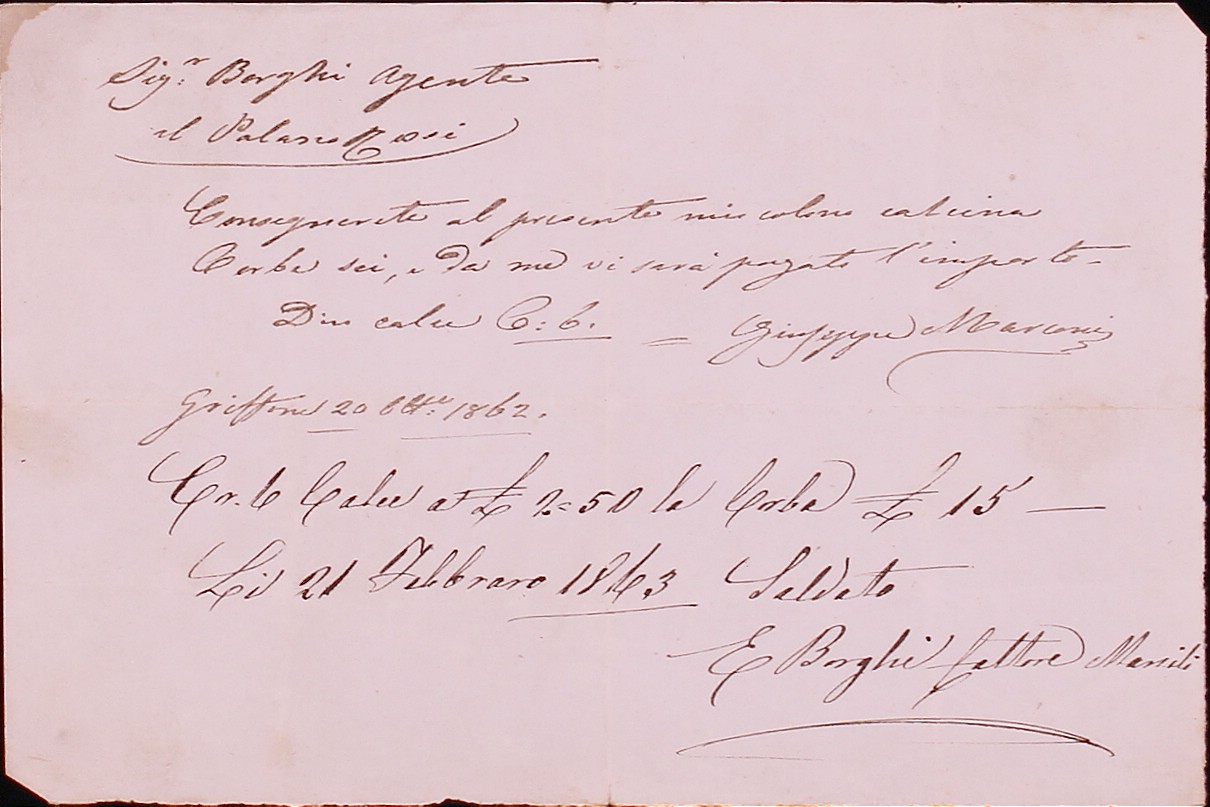 Sig.r Borghi Agente
al Palazzo Rossi
Consegnerete al presente mio colono calcina
Corbe sei, e da me vi sarà pagato l'importo -
Dico calce C: 6. = Giuseppe Marconi
Griffone 20 8bre 1862.
Cr. 6 Calce a £ 2=50 la Corba £ 15 —
Li 21 Febbraro 1863 Saldato
E Borghi fattore Marsili